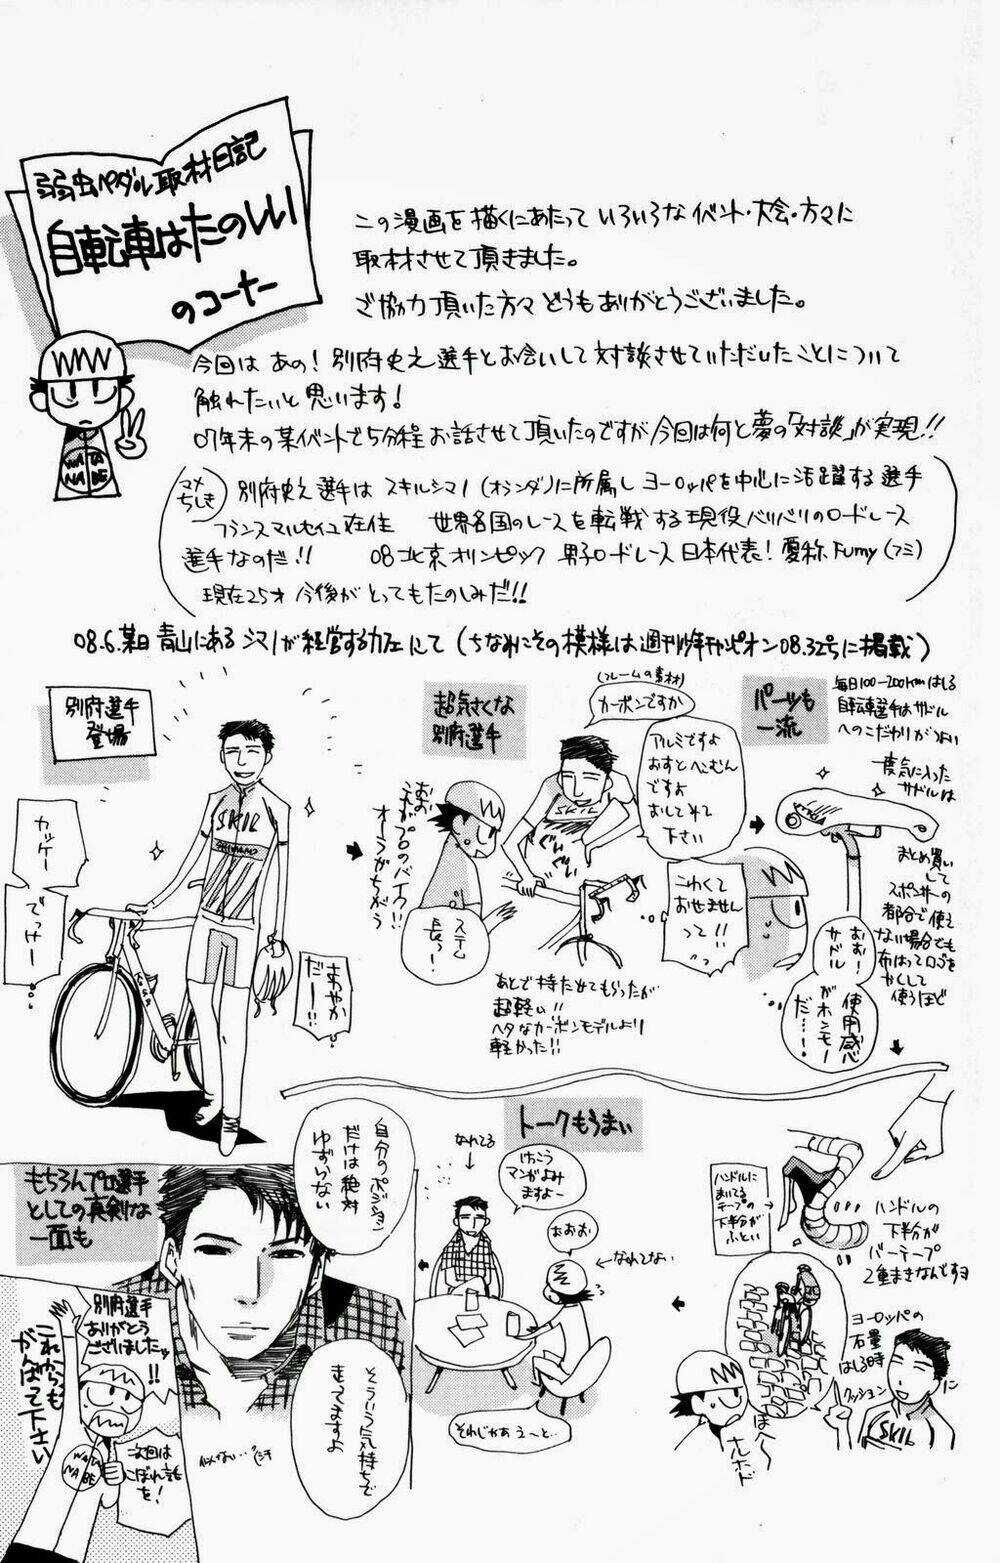 弱虫ペダル取材日記
自転車はたのしい
のコーナー
WATA
NABE
この漫画を描くにあたっていろいろなイベント・大会・方々に
取材させて頂きました。
ご協力頂いた方々どうもありがとうございました。
今回はあの！別府史之選手とお会いして対談させていただいたことについて
触れたいと思います！
07年末の某イベントで5分程お話させて頂いたのですが今回は何と夢の「対談」が実現!!
マメちしき
別府史之選手はスキルシマノ(オランダ)に所属しヨーロッパを中心に活躍する選手
フランスマルセイユ在住 世界各国のレースを転戦する現役バリバリのロードレース
選手なのだ!! 08北京オリンピック 男子ロードレース日本代表！愛称Fumy(フミ)
現在25才 今後がとってもたのしみだ!!
08.6.某日 青山にあるシマノが経営するカフェにて(ちなみにその模様は週刊少年チャンピオン08.32号に掲載)
別府選手
登場
カッケー
でっけー
SKIL
SHIMANO
さわやか
だー!!
超気さくな
別府選手
(フレームの素材)
カーボンですか
アルミですよ
おすとへこむん
ですよ
おしてみて
下さい
プロのバイク!!
オーラがちがう
ステム
長っ!
こわくて
おせません
って!!
あとで持たせてもらったが
超軽い!!
ヘタなカーボンモデルより
軽かった!!
パーツも
一流
毎日100-200kmはしる
自転車選手はサドル
へのこだわりがつよい
一度気に入った
サドルは
まとめ買い
して
スポンサーの
都合で使え
ない場合でも
布はってロゴを
かくして
使うほど
おお!
サドル
がホンモノ
使用感
だ…!
ハンドルに
まいてる
テープの
下半分が
ふとい
ハンドルの
下半分が
バーテープ
2重まきなんですヨ
ヨーロッパの
石畳
はしる時
クッション
に
SKIL
はへ〜
ナルホド
トークもうまい
なれてる
けっこう
マンガよみ
ますよー
おおお
なれてない
それじゃあう〜と…
もちろんプロ選手
としての真剣な
一面も
自分のポジション
だけは絶対
ゆずらない
そういう気持ちで
走ってますよ
似てない…
別府選手
ありがとう
ございましたッ
!!
これからも
がんばって下さい
次回は
こぼれ話
を!
WATA
NABE